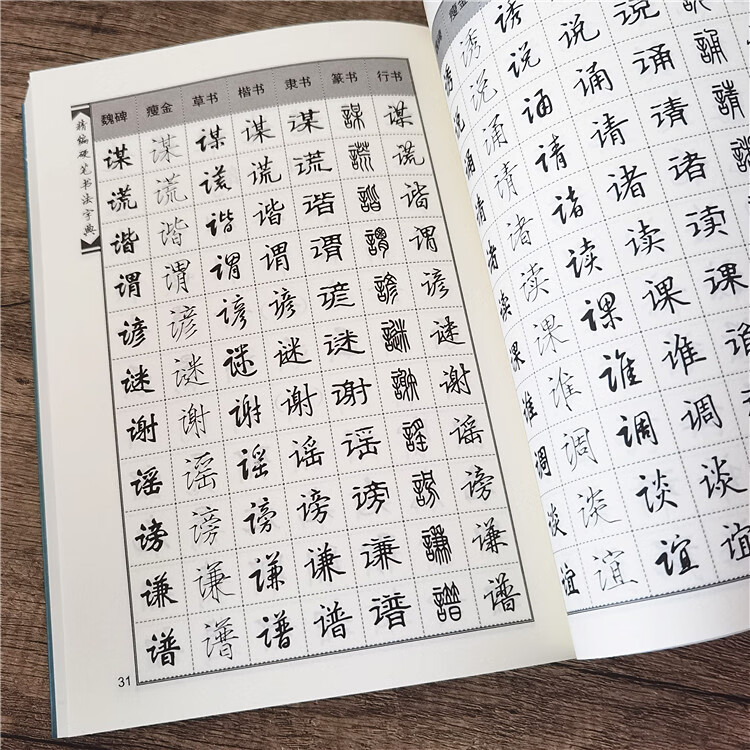 精编硬笔书法字典
魏碑 瘦金 草书 楷书 隶书 篆书 行书
谋 谋 谋 谋 谋 謀 谋
谎 谎 谎 谎 谎 謊 谎
谐 谐 谐 谐 谐 諧 谐
谓 谓 谓 谓 谓 謂 谓
谚 谚 谚 谚 谚 諺 谚
谜 谜 谜 谜 谜 謎 谜
谢 谢 谢 谢 谢 謝 谢
谣 谣 谣 谣 谣 謠 谣
谤 谤 谤 谤 谤 謗 谤
谦 谦 谦 谦 谦 謙 谦
谱 谱 谱 谱 谱 譜 谱
31
碑 瘦金
诱 诱 诱
说 说 说 说 说
诵 诵 诵 诵 诵 誦
请 请 请 请 请 請
诸 诸 诸 诸 诸
读 读 读 读 读
课 课 课 课 课
谁 谁 谁 谁 谁
调 调 调 调
谈 谈 谈 谈
谊 谊 谊 谊